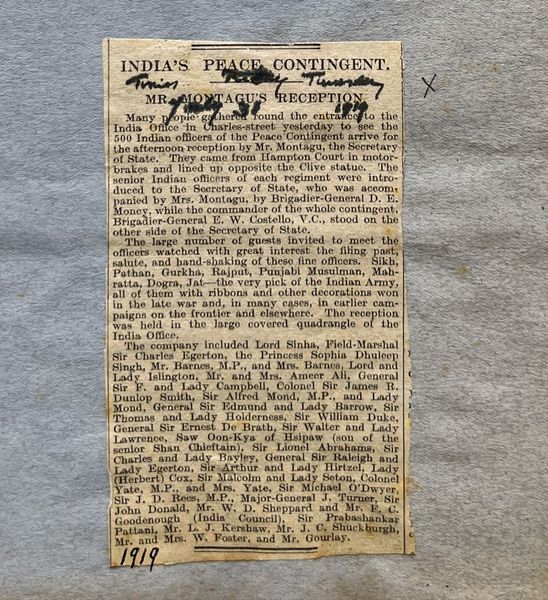 INDIA'S PEACE CONTINGENT.
Times Thursday
MR. MONTAGU'S RECEPTION.
31 1919
x
Many people gathered round the entrance to the
India Office in Charles-street yesterday to see the
500 Indian officers of the Peace Contingent arrive for
the afternoon reception by Mr. Montagu, the Secretary
of State. They came from Hampton Court in motor-
brakes and lined up opposite the Clive statue. The
senior Indian officers of each regiment were intro-
duced to the Secretary of State, who was accom-
panied by Mrs. Montagu, by Brigadier-General D. E.
Money, while the commander of the whole contingent,
Brigadier-General E. W. Costello, V.C., stood on the
other side of the Secretary of State.
The large number of guests invited to meet the
officers watched with great interest the filing past,
salute, and hand-shaking of these fine officers. Sikh,
Pathan, Gurkha, Rajput, Punjabi Musulman, Mah-
ratta, Dogra, Jat—the very pick of the Indian Army,
all of them with ribbons and other decorations won
in the late war and, in many cases, in earlier cam-
paigns on the frontier and elsewhere. The reception
was held in the large covered quadrangle of the
India Office.
The company included Lord Sinha, Field-Marshal
Sir Charles Egerton, the Princess Sophia Dhuleep
Singh, Mr. Barnes, M.P., and Mrs. Barnes, Lord and
Lady Islington, Mr. and Mrs. Ameer Ali, General
Sir F. and Lady Campbell, Colonel Sir James R.
Dunlop Smith, Sir Alfred Mond, M.P., and Lady
Mond, General Sir Edmund and Lady Barrow, Sir
Thomas and Lady Holderness, Sir William Duke,
General Sir Ernest De Brath, Sir Walter and Lady
Lawrence, Saw Oon-Kya of Hsipaw (son of the
senior Shan Chieftain), Sir Lionel Abrahams, Sir
Charles and Lady Bayley, General Sir Raleigh and
Lady Egerton, Sir Arthur and Lady Hirtzel, Lady
(Herbert) Cox, Sir Malcolm and Lady Seton, Colonel
Yate, M.P., and Mrs. Yate, Sir Michael O'Dwyer,
Sir J. D. Rees, M.P., Major-General J. Turner, Sir
John Donald, Mr. W. D. Sheppard and Mr. F. C.
Goodenough (India Council), Sir Prabashankar
Pattani, Mr. L. J. Kershaw, Mr. J. C. Shuckburgh,
Mr. and Mrs. W. Foster, and Mr. Gourlay.
1919